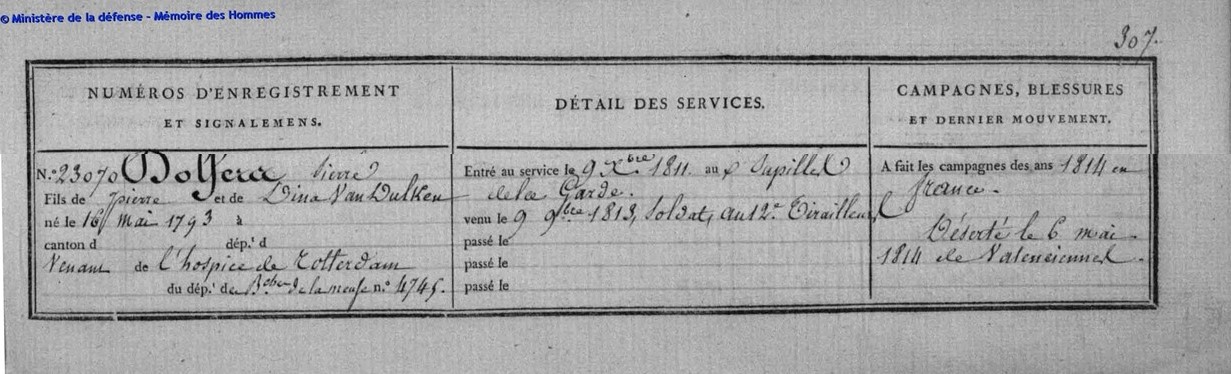 © Ministère de la défense - Mémoire des Hommes
307.
NUMÉROS D'ENREGISTREMENT
ET SIGNALEMENS.
N.º 23070 Pierre
Fils de pierre et de Dina Van Dulken
né le 16 mai 1793 à
canton d dép.t d
Venant de l'hospice de Rotterdam
du dép.t des Bches de la meuse n.º 4745.
DÉTAIL DES SERVICES.
Entré au service le 9 Xbre 1811. au Pupilles
de la Garde.
venu le 9 9bre 1813, Soldat, au 12e Tirailleurs
passé le
passé le
passé le
CAMPAGNES, BLESSURES
ET DERNIER MOUVEMENT.
A fait les campagnes des ans 1814 en
france.
Déserté le 6 mai
1814 de Valenciennes.